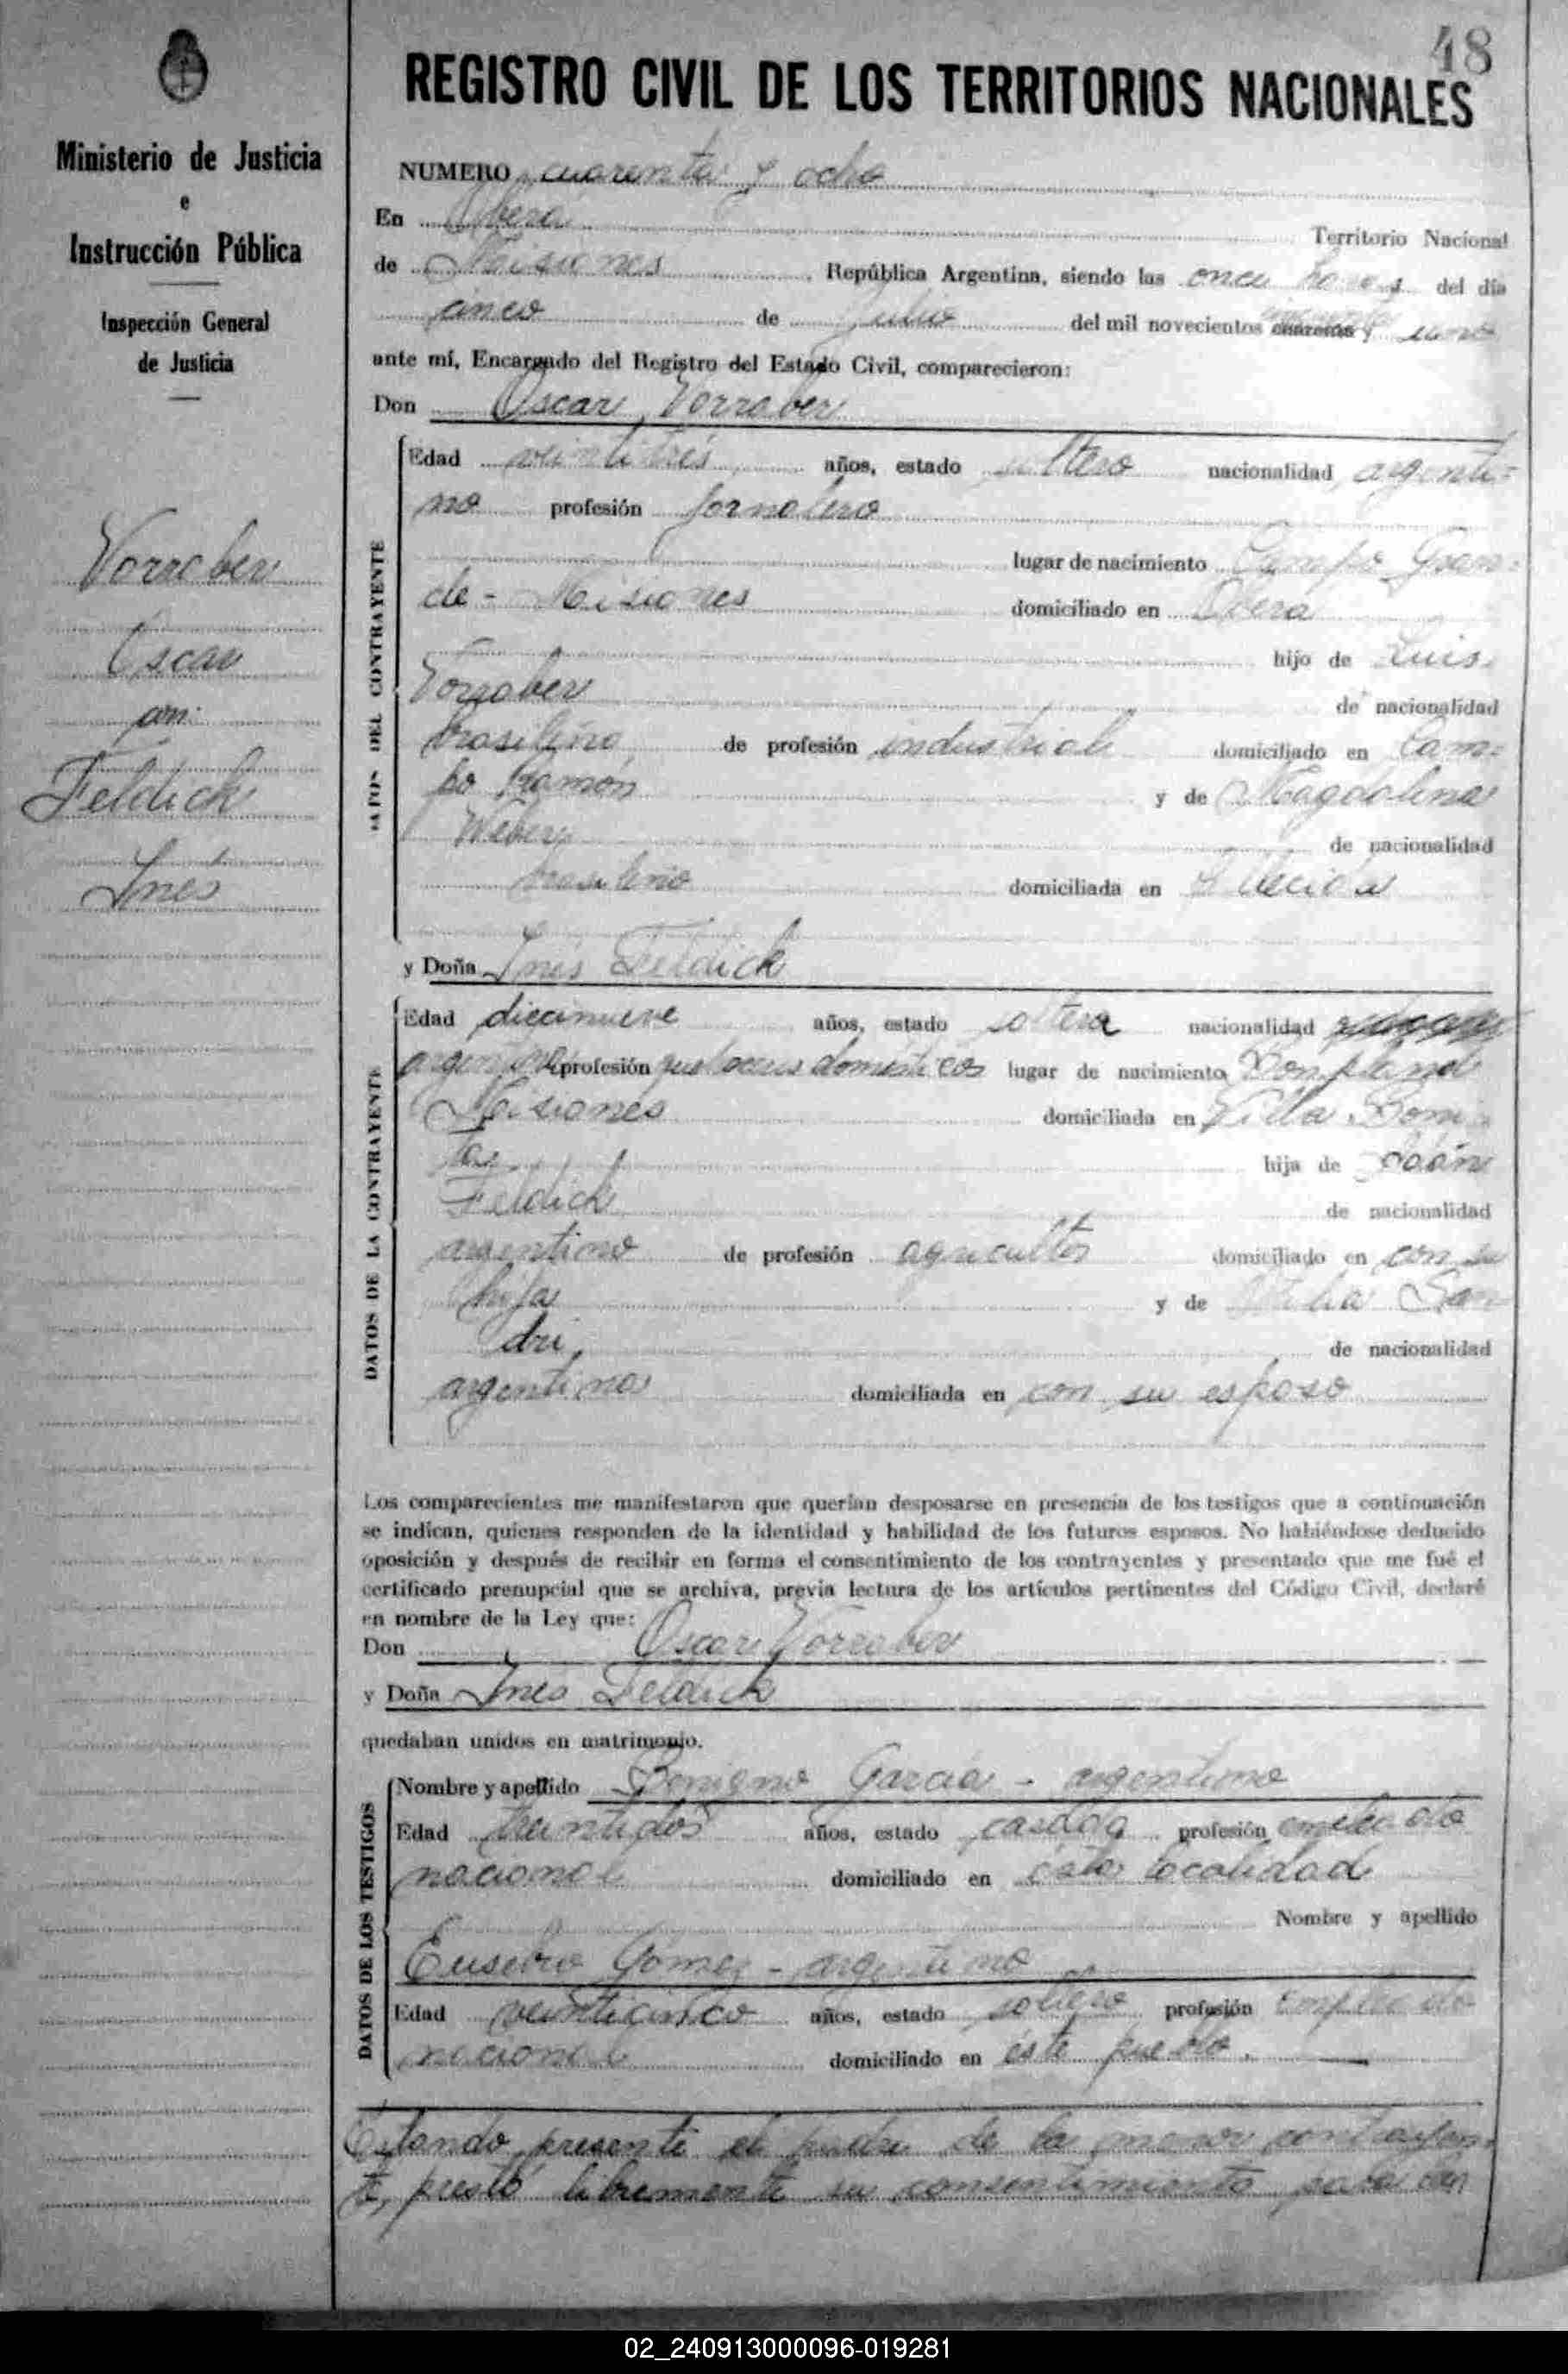 48
REGISTRO CIVIL DE LOS TERRITORIOS NACIONALES
Ministerio de Justicia
e
Instrucción Pública
Inspección General
de Justicia
Vorraber
Oscar
con
Feldick
Inés
NUMERO cuarenta y ocho
En Oberá Territorio Nacional
de Misiones República Argentina, siendo las once horas del día
cinco de julio del mil novecientos uno
ante mí, Encargado del Registro del Estado Civil, comparecieron:
Don Oscar Vorraber
DATOS DEL CONTRAYENTE
Edad veintitrés años, estado soltero nacionalidad argenti-
no profesión jornalero
lugar de nacimiento Campo Gran-
de - Misiones domiciliado en Oberá
hijo de Luis
Vorraber de nacionalidad
brasilero de profesión industrial domiciliado en Cam-
po Ramón y de Magdalena
Weber de nacionalidad
domiciliada en fallecida
y Doña Inés Feldick
DATOS DE LA CONTRAYENTE
Edad diecinueve años, estado soltera nacionalidad
argentina profesión quehaceres domésticos lugar de nacimiento Bonpland
Misiones domiciliada en Villa Boni-
ta hija de
Feldick de nacionalidad
argentino de profesión agricultor domiciliado en con su
hija y de
de nacionalidad
argentina domiciliada en con su esposo
Los comparecientes me manifestaron que querían desposarse en presencia de los testigos que a continuación
se indican, quienes responden de la identidad y habilidad de los futuros esposos. No habiéndose deducido
oposición y después de recibir en forma el consentimiento de los contrayentes y presentado que me fué el
certificado prenupcial que se archiva, previa lectura de los artículos pertinentes del Código Civil, declaré
en nombre de la Ley que:
Don Oscar Vorraber
y Doña Inés Feldick
quedaban unidos en matrimonio.
DATOS DE LOS TESTIGOS
Nombre y apellido Benigno García - argentino
Edad treintidos años, estado casado profesión empleado
nacional domiciliado en ésta localidad
Nombre y apellido
Eusebio Gomez - argentino
Edad veinticinco años, estado soltero profesión empleado
nacional domiciliado en éste pueblo.
Estando presente el padre de la menor contrayen-
te, prestó libremente su consentimiento para
02_240913000096-019281